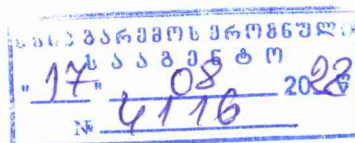 გარემოს ეროვნული
სააგენტო
"17" 08 2022
№ 4116